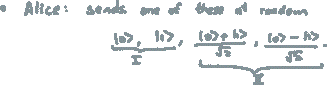 • Alice: sends one of these at random
|0>, |1>, (|0>+|1>)/√2, (|0>-|1>)/√2.
I II